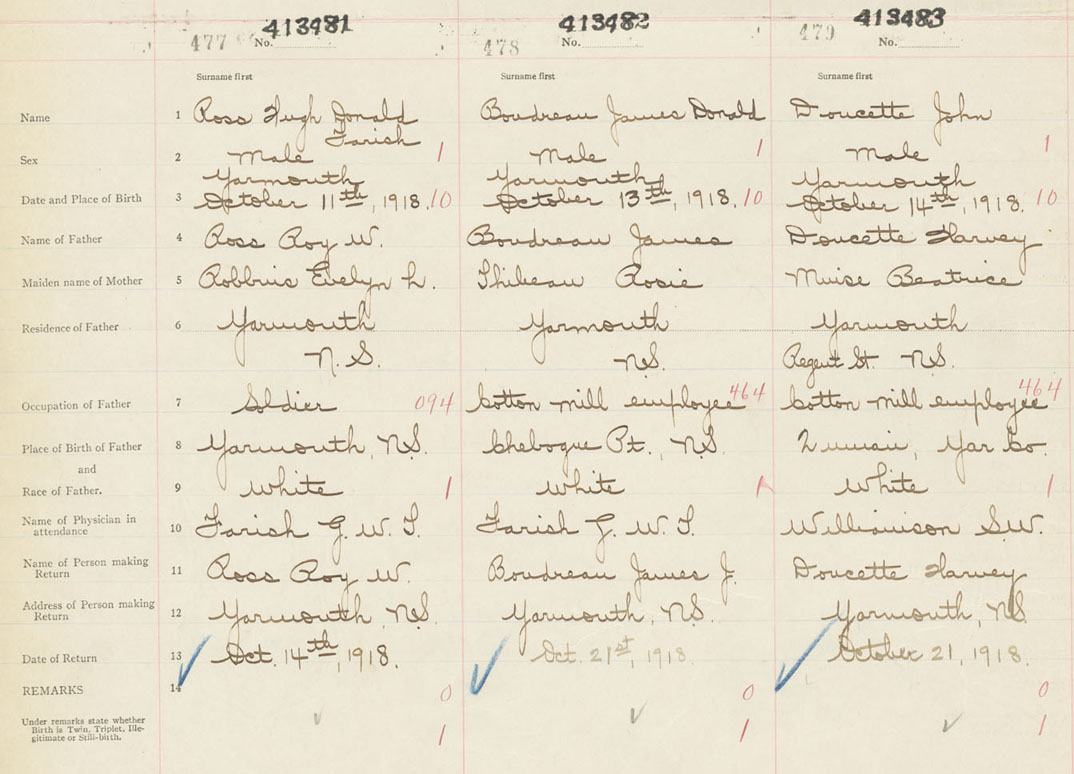 413481 413482 413483
477 No. 478 No. 479 No.
Surname first Surname first Surname first
Name 1 Ross Hugh Donald Boudreau James Donald Doucette John
Farish
Sex 2 Male 1 Male 1 Male 1
Yarmouth Yarmouth Yarmouth
Date and Place of Birth 3 October 11th, 1918. 10 October 13th, 1918. 10 October 14th, 1918. 10
Name of Father 4 Ross Roy W. Boudreau James Doucette Harvey
Maiden name of Mother 5 Robbins Evelyn L. Thibeau Rosie Muise Beatrice
Residence of Father 6 Yarmouth Yarmouth Yarmouth
N. S. N.S. Regent St. N.S.
Occupation of Father 7 Soldier 094 Cotton mill employee 464 Cotton mill employee 464
Place of Birth of Father 8 Yarmouth, N.S. Chebogue Pt., N.S. Yar Co.
and
Race of Father. 9 White 1 White 1 White 1
Name of Physician in
attendance 10 Farish G. W. T. Farish G. W. T. Williamson S.W.
Name of Person making
Return 11 Ross Roy W. Boudreau James J. Doucette Harvey
Address of Person making
Return 12 Yarmouth, N.S. Yarmouth, N.S. Yarmouth, N.S.
Date of Return 13 Oct. 14th, 1918. Oct. 21st, 1918. October 21, 1918.
REMARKS 14 0 0 0
Under remarks state whether
Birth is Twin, Triplet, Ille-
gitimate or Still-birth. 1 1 1